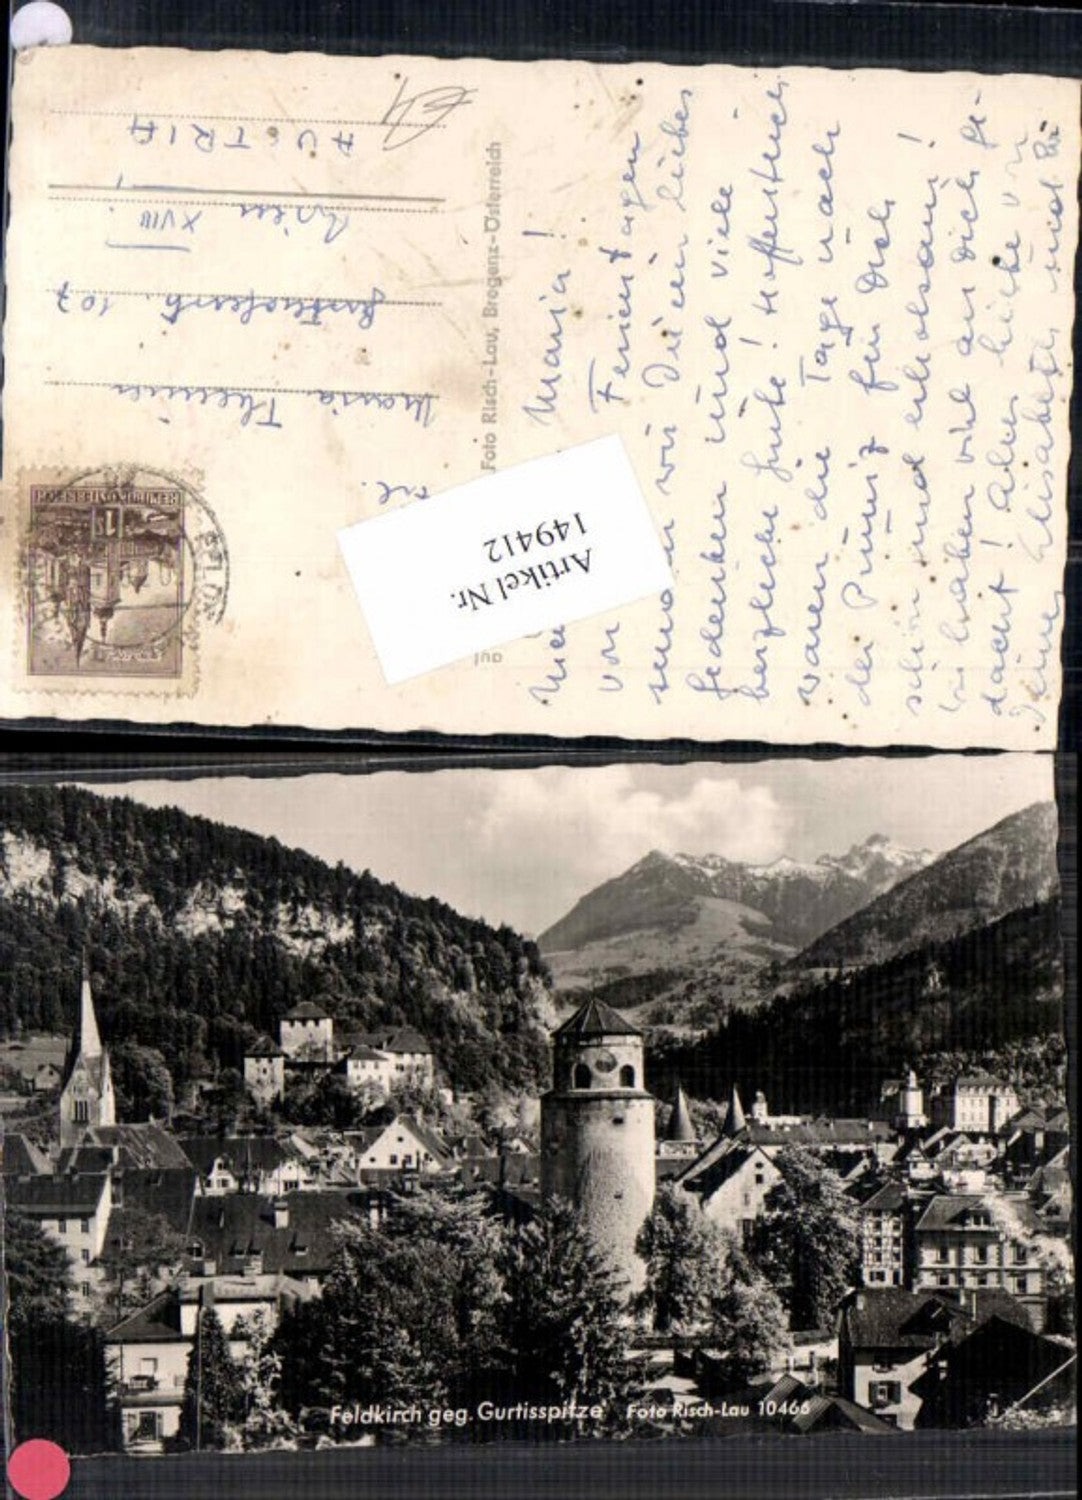 Meine Maria!
Von Ferientagen
senden wir Dir ein liebes
Gedenken und viele
herzliche Grüße! Hoffentlich
waren die Tage nach
der Prüfung für Dich
schön und erholsam!
Wir haben viel an Dich ge-
dacht! Alles liebe von
Deiner Elisabeth und
Foto Risch-Lau, Bregenz-Österreich
Maria
107
Wien XVIII.
AUSTRIA
REPUBLIK ÖSTERREICH
1
Artikel Nr.
149412
Feldkirch geg. Gurtisspitze Foto Risch-Lau 10466